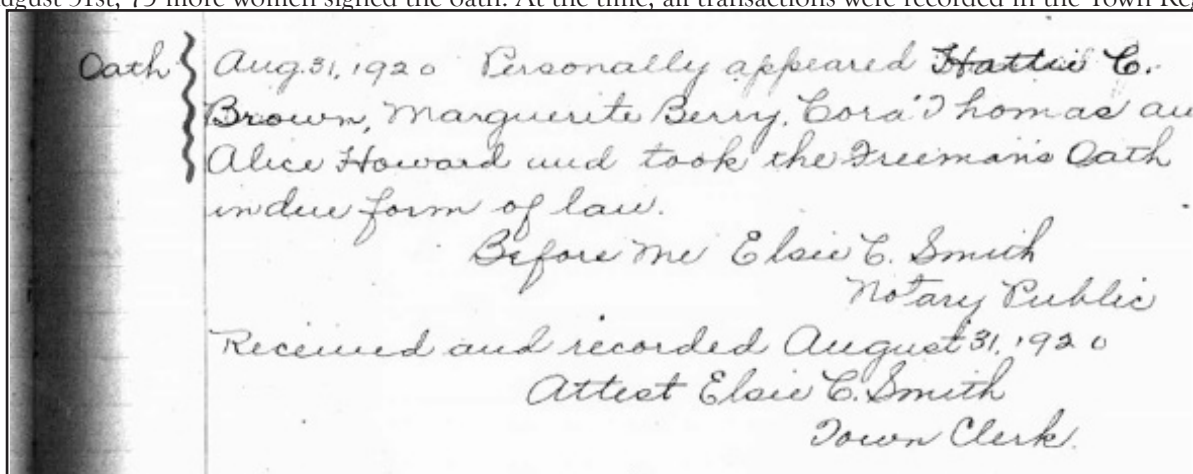 august 31st, 75 more women signed the oath. At the time, all transactions were recorded in the Town Reg
Oath Aug. 31, 1920 Personally appeared Hattie C.
Brown, Marguerite Berry, Cora Thomas an
Alice Howard and took the Freeman's Oath
in due form of law.
Before me Elsie C. Smith
Notary Public
Received and recorded August 31, 1920
Attest Elsie C. Smith
Town Clerk.